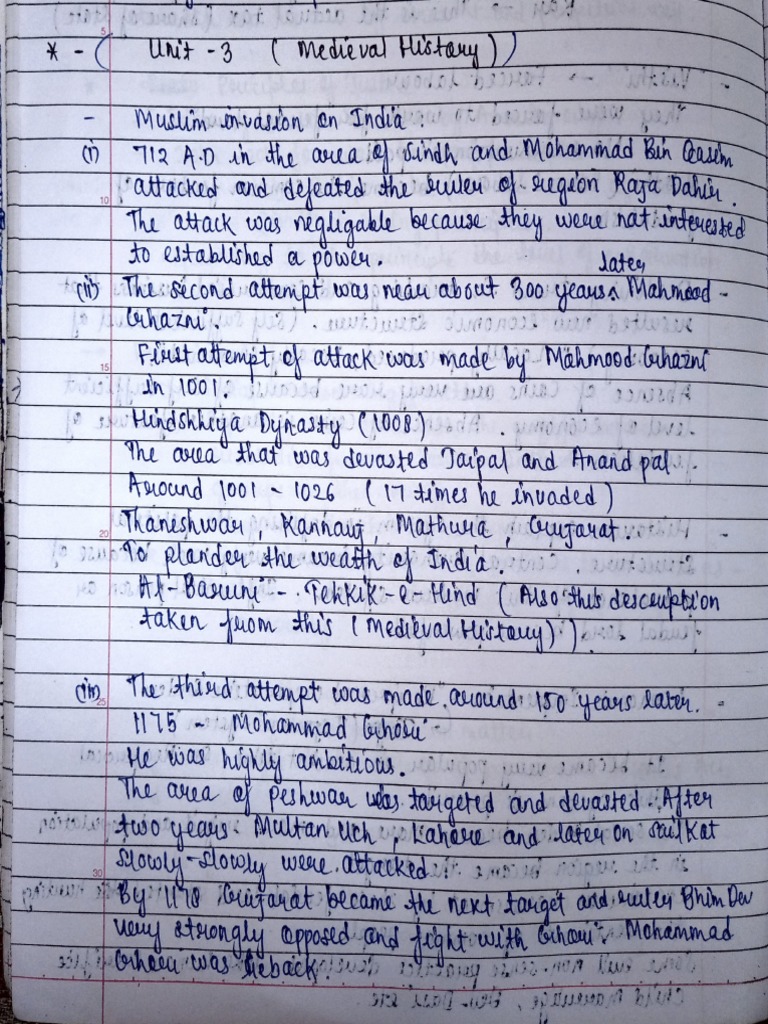 * - ( Unit - 3 ( Medieval History ) )
- Muslim invasion on India.
(i) 712 A.D in the area of Sindh and Mohammad Bin Qasim
attacked and defeated the ruler of region Raja Dahir.
The attack was negligable because they were not interested
to established a power.
later
(ii) The second attempt was near about 300 years ^ Mahmood -
Ghazni.
First attempt of attack was made by Mahmood Ghazni
in 1001
Hindshhiya Dynasty (1008)
The area that was devasted Jaipal and Anand pal.
Around 1001 - 1026 ( 17 times he invaded )
Thaneshwar, Kannauj, Mathura, Gujarat
To plander the wealth of India.
Al- Baruni - Tekkik-e-Hind ( Also this description
taken from this ( Medieval History) ) .
(iii) The third attempt was made around 150 years later. -
1175 - Mohammad Ghori -
He was highly ambitious.
The area of peshwar was targeted and devasted. After
two years Multan Uch, Lahore and later on Sailkat
slowly-slowly were attacked.
By 1178 Gujarat became the next target and ruler Bhim Dev
very strongly opposed and fight with Ghori. Mohammad
Ghori was